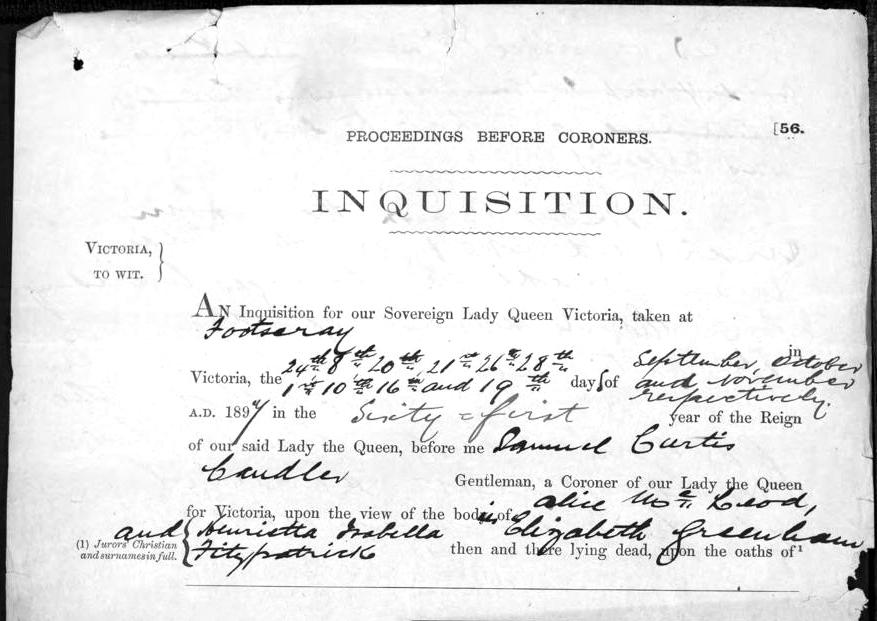 [56.
PROCEEDINGS BEFORE CORONERS.
INQUISITION.
VICTORIA,
TO WIT.
AN Inquisition for our Sovereign Lady Queen Victoria, taken at
Footscray in
24th 8th 20th, 21st 26th 28th September, October
Victoria, the 1st 10th 16th and 19th days of and November
respectively.
A.D. 1897 in the Sixty-first year of the Reign
of our said Lady the Queen, before me Samuel Curtis
Candler Gentleman, a Coroner of our Lady the Queen
for Victoria, upon the view of the bodies of Alice McLeod,
and Henrietta Isabella Elizabeth Greenham
Fitzpatrick then and there lying dead, upon the oaths of¹
(1) Jurors' Christian
and surnames in full.